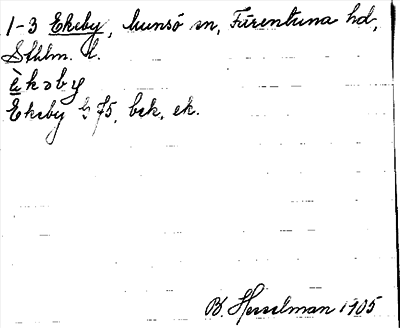 1-3 Ekeby, Munsö sn, Färentuna hd,
Sthlm. l.
è̱kəby
Ekeby ½ 75, bck, ek.
B. Hesselman 1905